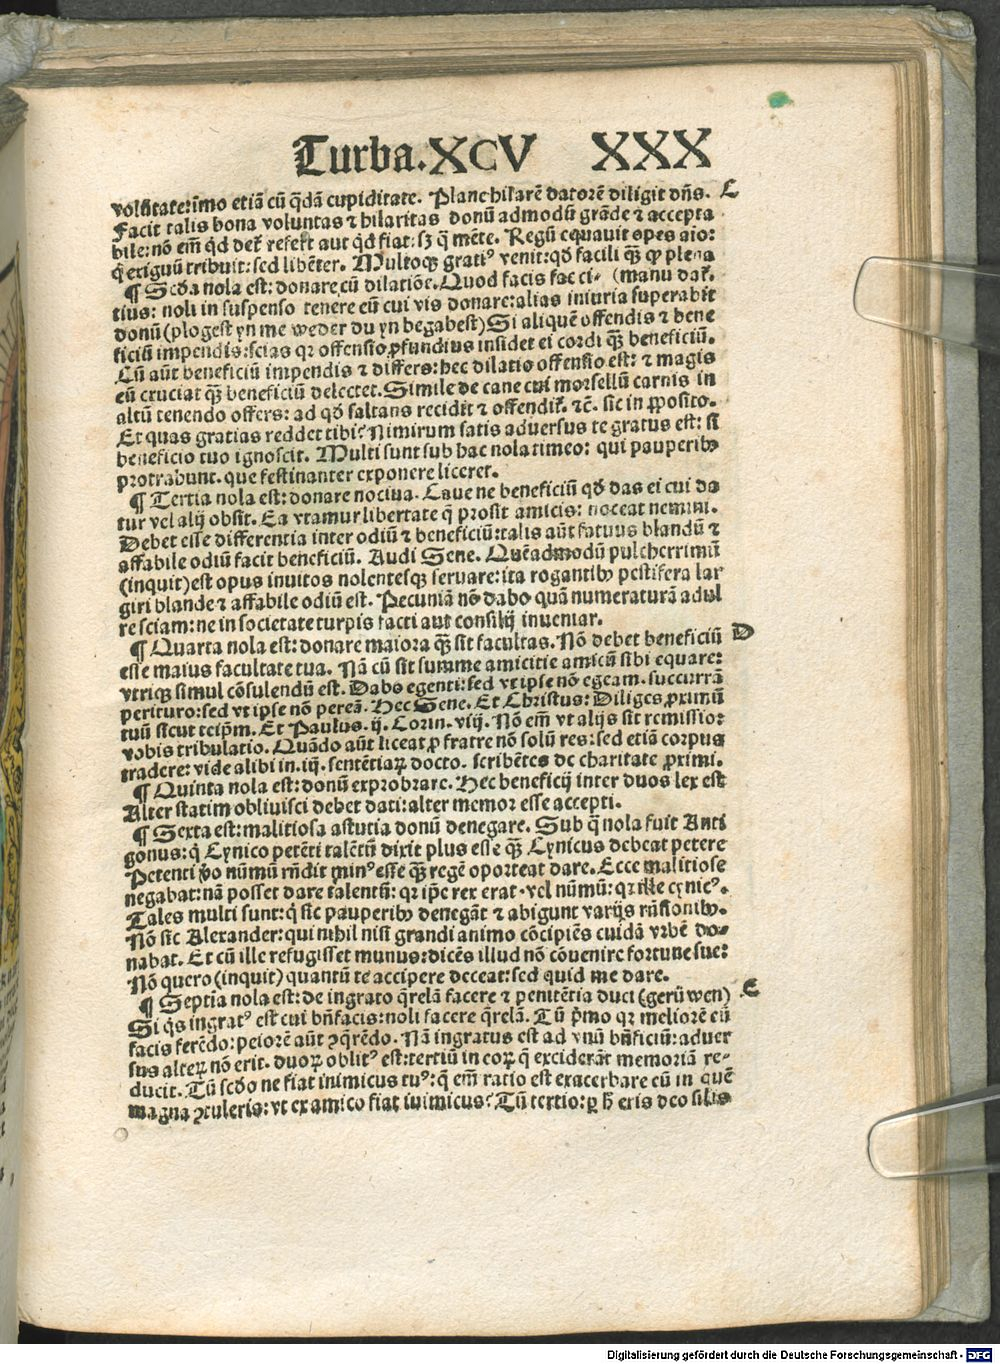 Turba.XCV XXX
volūtate:imo etiā cū q̄dā cupiditate. Planc hilarē datorē diligit dn̄s. C
Facit talis bona voluntas ⁊ hilaritas donū admodū grāde ⁊ accepta
bile: nō em̄ q̇d det̄ refert aut q̇d fiat: sꝫ q̄ mēte. Regū equauit opes aīo:
q̇ exiguū tribuit: sed libēter. Multoqꝫ gratiꝰ venit: qd̄ facili qꝫ̄ qƺ plena
¶ Scd̄a nola est: donare cū dilatiōe. Quod facis fac ci- (manu dat̄.
tius: noli in suspenso tenere eū cui vis donare: alias iniuria superabit
donū (plogest yn me weder du yn begabest) Si aliquē offendis ⁊ bene
ficiū impendis: scias qꝛ offensio ꝓfundius insidet ei cordi qꝫ̄ beneficiū.
Cū aūt beneficiū impendis ⁊ differs: hec dilatio offensio est: ⁊ magis
eū cruciat qꝫ̄ beneficiū delectet. Simile de cane cui morsellū carnis in
altū tenendo offers: ad qd̄ saltans recidit ⁊ offendit̄. ⁊c̄. sic in ꝓposito.
Et quas gratias reddet tibi? Nimirum satis aduersus te gratus est: si
beneficio tuo ignoscit. Multi sunt sub hac nola timeo: qui pauperibꝫ
protrahunt. que festinanter exponere liceret.
¶ Tertia nola est: donare nociua. Caue ne beneficiū qd̄ das ei cui da
tur vel alij obsit. Ea vtamur libertate q̄ prosit amicis: noceat nemini.
Debet esse differentia inter odiū ⁊ beneficiū: talis aūt fatuus blandū ⁊
affabile odiū facit beneficiū. Audi Sene. Quēadmodū pulcherrimū
(inquit) est opus inuitos nolentesqꝫ seruare: ita rogantibꝫ pestifera lar
giri blande ⁊ affabile odiū est. Pecuniā nō dabo quā numeraturā adul
re sciam: ne in societate turpis facti aut consilij inueniar.
¶ Quarta nola est: donare maiora qꝫ̄ sit facultas. Nō debet beneficiū D
esse maius facultate tua. Nā cū sit summe amicitie amicū sibi equare:
vtriqꝫ simul cōsulendū est. Dabo egenti: sed vt ipse nō egeam. succurrā
perituro: sed vt ipse nō pereā. Hec Sene. Et Christus: Diliges ꝓximū
tuū sicut teip̄m. Et Paulus. ij. Corin. viij. Nō em̄ vt alijs sit remissio:
vobis tribulatio. Quādo aūt liceat ꝓ fratre nō solū res: sed etiā corpus
tradere: vide alibi in. iij. sentētiaꝝ docto. scribētes de charitate ꝓximi.
¶ Quinta nola est: donū exprobrare. Hec beneficij inter duos lex est
Alter statim obliuisci debet dati: alter memor esse accepti.
¶ Sexta est: malitiosa astutia donū denegare. Sub q̄ nola fuit Anti
gonus: q̇ Cynico petēti talētū dixit plus esse qꝫ̄ Cynicus debeat petere
Petenti ꝟo nūmū rn̄dit minꝰ esse qꝫ̄ regē oporteat dare. Ecce malitiose
negabat: nā posset dare talentū: qꝛ ip̄e rex erat. vel nūmū: qꝛ ille cynicꝰ.
Tales multi sunt: q̇ sic pauperibꝫ denegāt ⁊ abigunt varijs rn̄sionibꝫ.
Nō sic Alexander: qui nihil nisi grandi animo cōcipiēs cuidā vrbē do-
nabat. Et cū ille refugisset munus: dicēs illud nō cōuenire fortune sue:
Nō quero (inquit) quantū te accipere deceat: sed quid me dare.
¶ Septīa nola est: de ingrato q̄relā facere ⁊ penitētia duci (gerüwen) E
Si q̇s ingratꝰ est cui bn̄facis: noli facere q̄relā. Tū p̄mo qꝛ meliorē eū
facis ferēdo: peiorē aūt ꝯq̄rēdo. Nā ingratus est ad vnū bn̄ficiū: aduer
sus alteꝝ nō erit. duoꝝ oblitꝰ est: tertiū in eoꝝ q̄ exciderāt memoriā re-
ducit. Tū scd̄o ne fiat inimicus tuꝰ: q̄ em̄ ratio est exacerbare eū in quē
magna ꝯtuleris: vt ex amico fiat inimicus? Tū tertio: ꝑ h̄ eris deo silis
Digitalisierung gefördert durch die Deutsche Forschungsgemeinschaft - DFG